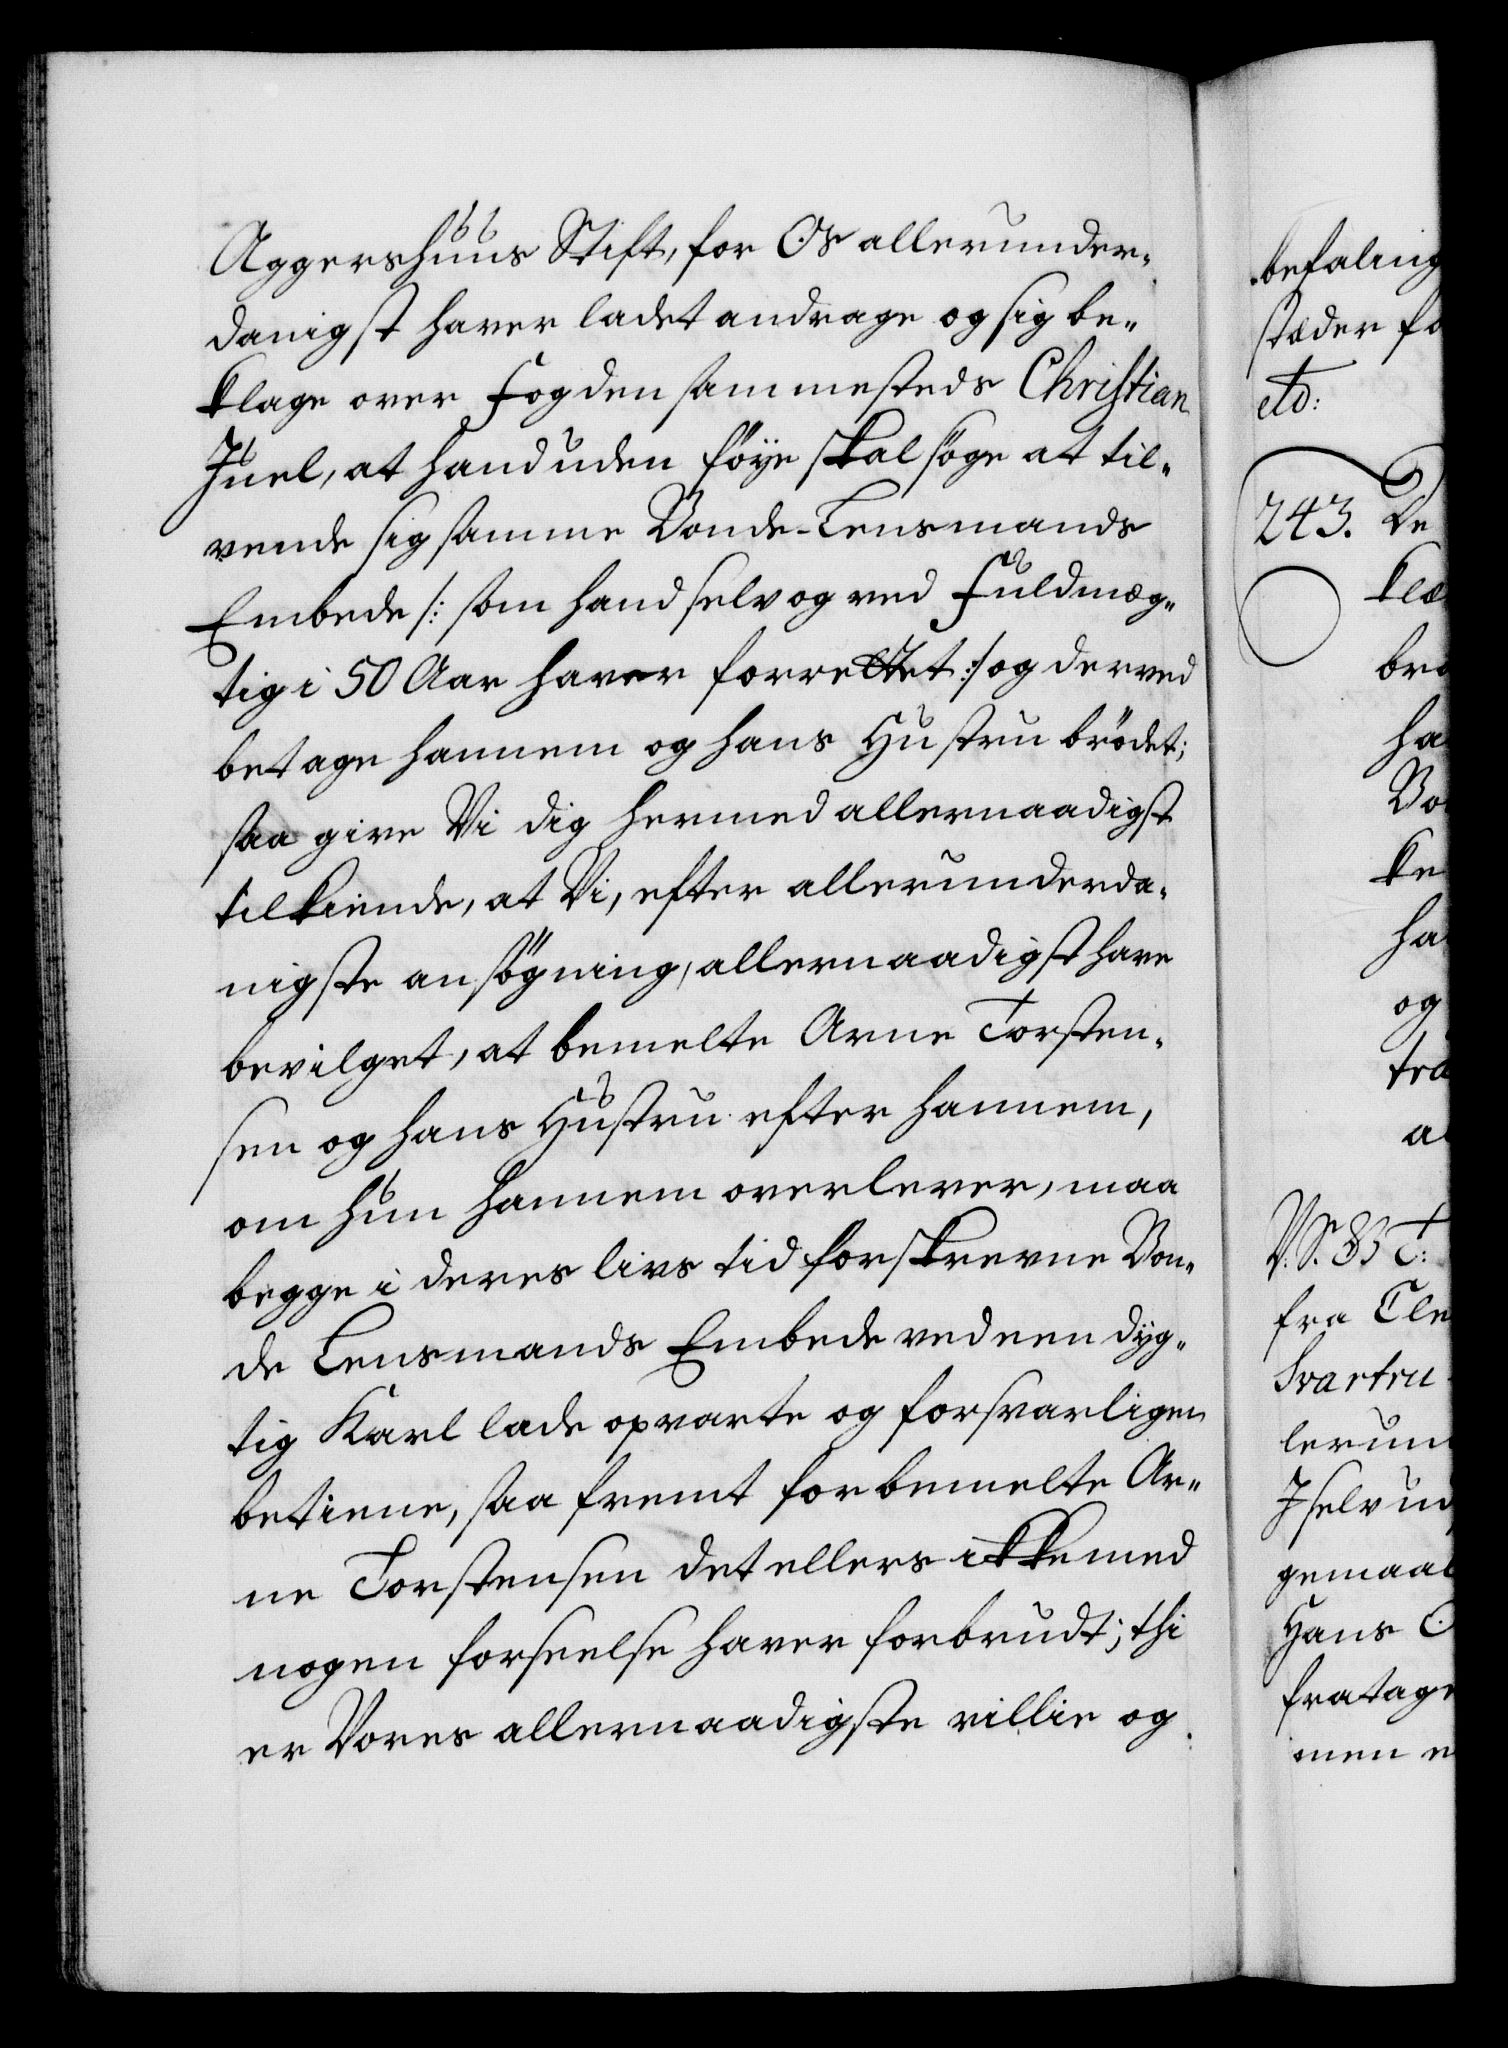 Aggershuus Stift, for Os allerunder„
danigst haver ladet andrage og sig be„
klage over Fogden sammesteds Christian
Juel, at hand uden föÿe skal söge at til„
vende sig samme Bonde-Lensmands
Embede /: som hand selv og ved Fuldmæg„
tig i 50 Aar haver forrettet :/ og derved
betage hannem og hans Hustru brödet;
saa give Vi dig hermed allernaadigst
tilkiende, at Vi, efter allerunderda„
nigste ansögning, allernaadigst have
bevilget, at bemelte Arne Torsten„
sen og hans Hustru efter hannem,
om hun hannem overlever, maa
begge i deres livs tid forskrevne Bon„
de Lensmands Embede ved een dyg„
tig Karl lade opvarte og forsvarligen
betiene, saa fremt forbemelte Ar„
ne Torstensen det ellers ikke med
nogen forseelse haver forbrudt; thi
er Vores allernaadigste villie og
befaling
stæder fo
etc:
243. De
klæ
bro
ha
Bo
ke
ha
og
tra
a
V. S. B T:
fra Cle
Svartru
lerun
J selv ud
gemaal
Hans O
fratage
men e